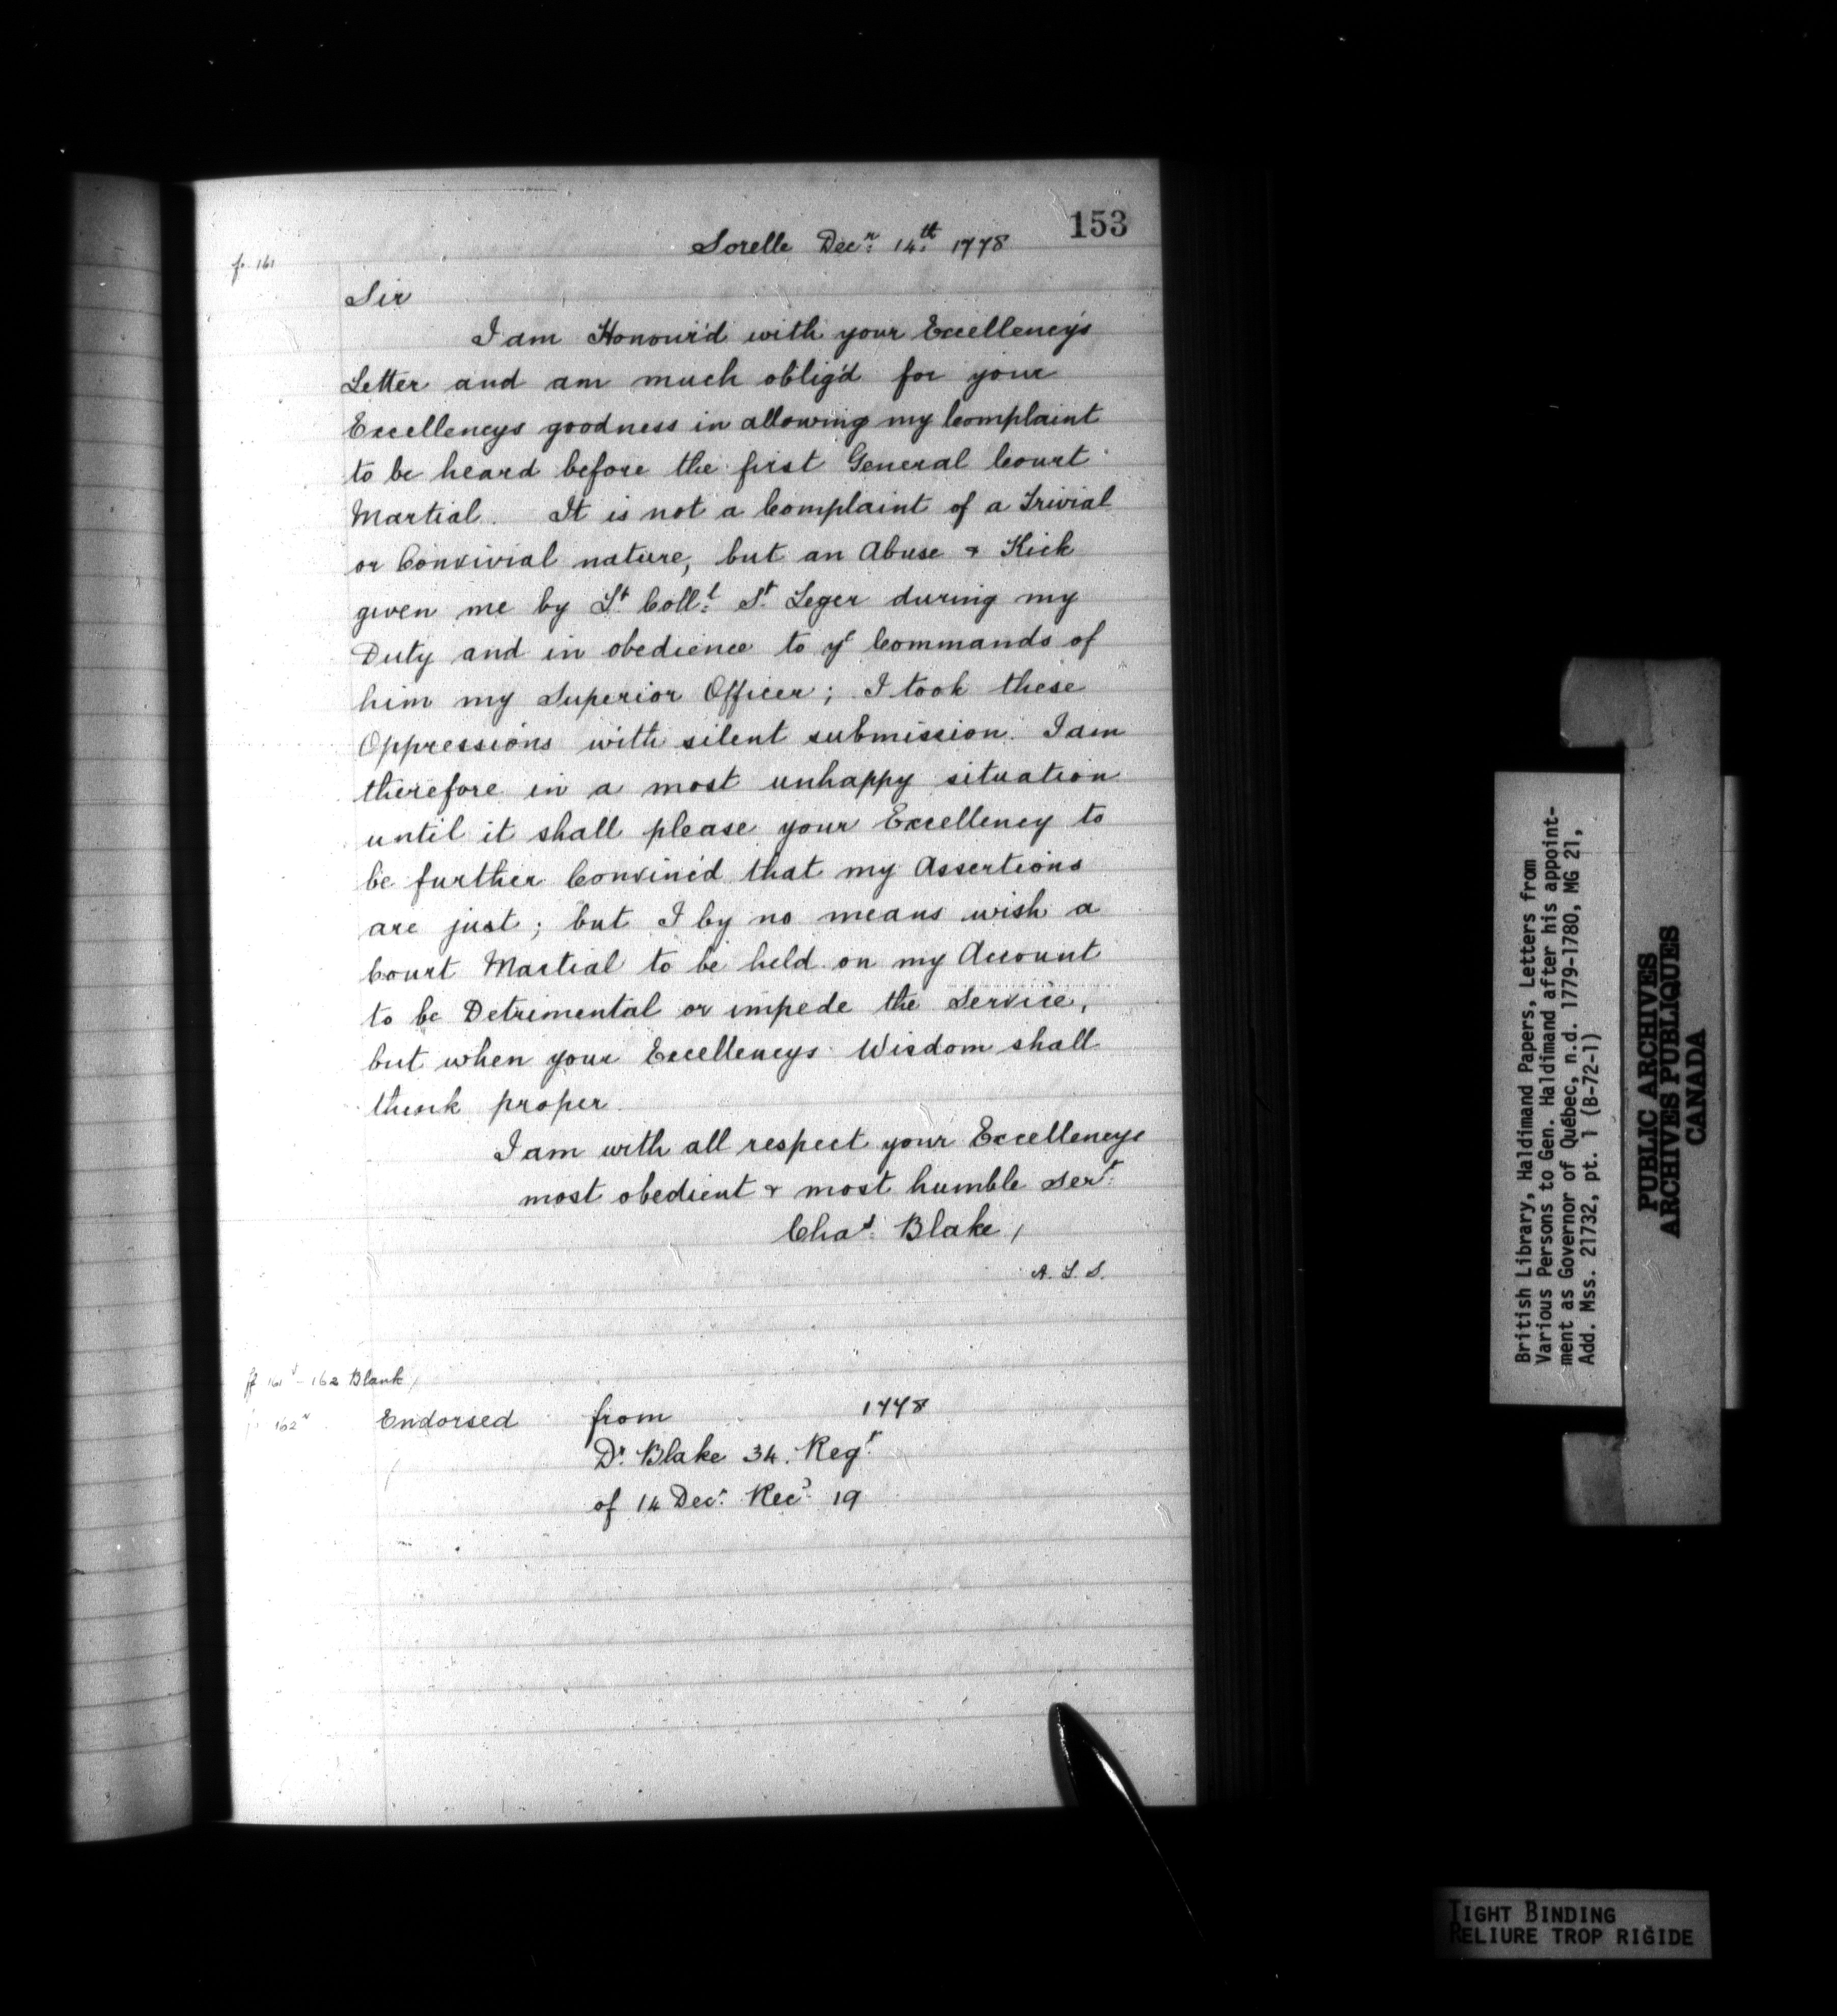 153
Sorelle Decr: 14th 1778
f. 161
Sir
I am Honour'd with your Excellency's
Letter and am much oblig'd for your
Excellencys goodness in allowing my Complaint
to be heard before the first General Court
Martial. It is not a Complaint of a Trivial
or Convivial nature, but an Abuse & Kick
given me by Lt Coll: St Leger during my
Duty and in obedience to ye Commands of
him my Superior Officer; I took these
Oppressions with silent submission. I am
therefore in a most unhappy situation
until it shall please your Excellency to
be further Convinc'd that my Assertions
are just; but I by no means wish a
Court Martial to be held on my Account
to be Detrimental or impede the Service,
but when your Excellencys Wisdom shall
think proper
I am with all respect your Excellencys
most obedient & most humble Sert:
Chas: Blake /
A. L. S.
ff 161v - 162 Blank
162v Endorsed from 1778
Dr. Blake 34. Regt:
of 14 Decr: Recd 19
British Library, Haldimand Papers, Letters from
Various Persons to Gen. Haldimand after his appoint-
ment as Governor of Québec, n.d. 1779-1780, MG 21,
Add. Mss. 21732, pt. 1 (B-72-1)
PUBLIC ARCHIVES
ARCHIVES PUBLIQUES
CANADA
TIGHT BINDING
RELIURE TROP RIGIDE